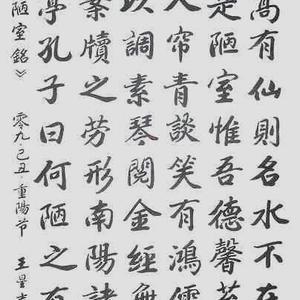 高有仙則名水不在
是陋室惟吾德馨苔
入帘青談笑有鴻儒
以調素琴閱金經無
案牘之勞形南陽諸
亭孔子曰何陋之有
陋室銘》零九·己丑·重陽節 王星